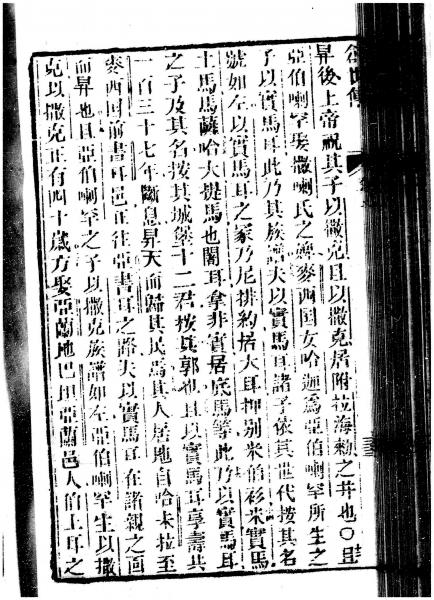 創世傳
昇後上帝祝其子以撒克且以撒克居附拉海勑之井也〇且
亞伯喇罕娶撒喇氏之婢麥西國女哈迦爲亞伯喇罕所生之
子以實馬耳此乃其族譜夫以實馬耳諸子依其世代按其名
號如左以實馬耳之冢乃尼排約措大耳押別米伯衫米實馬
土馬馬薩哈大提馬也闍耳拿非實居底馬等此乃以實馬耳
之子及其名按其城堡十二君按其郭也且以實馬耳享壽共
一百三十七年斷息昇天而歸其民焉其人居地自哈未拉至
麥西囯前書耳邑正往亞書耳之路夫以實馬耳在諸親之面
而昇也且亞伯喇罕之子以撒克族譜如左亞伯喇罕生以撒
克以撒克正有四十歲方娶亞蘭地巴坦亞蘭邑人伯土耳之